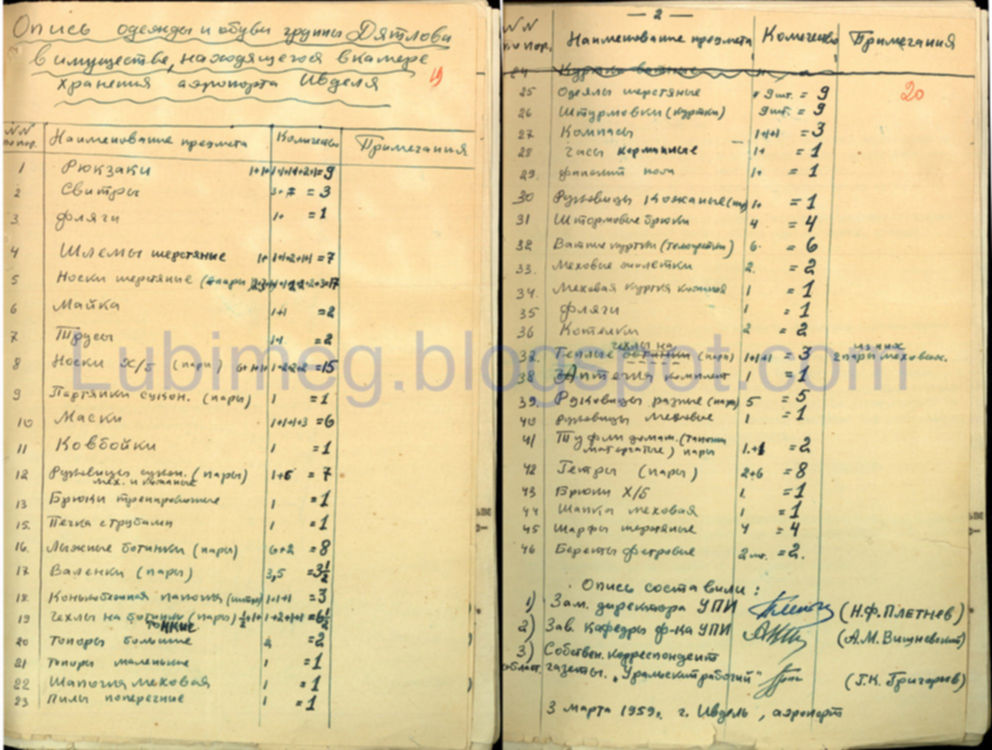 Опись одежды и обуви группы Дятлова
в имуществе, находящегося в камере
хранения аэропорта Ивделя
19
NN по пор. Наименование предмета Количество Примечания
1 Рюкзаки =9
2 Свитры =3
3. Фляги 1+ =1
4 Шлемы шерстяные =7
5 Носки шерстяные =17
6 Майка 1+1 =2
7 Трусы 1+1 =2
8 Носки х/б (пары) =15
9 Портянки сукон. (пары) 1 =1
10 Маски 1+1+1+3 =6
11 Ковбойки 1 =1
12 Рукавицы сукон. (пары) 1+6 =7
мех. и кожаные
13 Брюки тренировочные 1 =1
15. Печка с трубами 1 =1
16. Лыжные ботинки (пары) 6+2 =8
17 Валенки (пары) 3,5 =3½
18. 1+1+1 =3
19 Чехлы на ботинки (пары) =6½
тонкие
20 Топоры большие 2 =2
21 Топоры маленькие 1 =1
22 Шапочка меховая 1 =1
23 Пилы поперечные 1 =1
— 2 —
NN по пор. Наименование предмета Количество Примечания
20
24 Куртки ватные
25 Одеялы шерстяные 9 шт. = 9
26 Штурмовки (куртки) 9 шт. = 9
27 Компасы 1+1+1 =3
28 Часы карманные 1+ =1
29. Финский нож 1+ =1
30 Рукавицы кожаные 1+ =1
31 Штормовые брюки 4 =4
32 Ватные куртки (телогрейки) 6. =6
33. Меховые жилетки 2. =2
34. Меховая куртка 1 =1
35 Фляги 1 =1
36 Котелки 2 =2
чехлы на из них
37. Теплые ботинки (пары) 1+1+1 =3 2 пары меховых.
38 Аптечка комплект 1 =1
39. Рукавицы разные (пары) 5 =5
40 Рукавицы меховые 1 =1
41 Туфли домаш. (тапочки
матерчатые) пары 1+1 =2
42 Гетры (пары) 2+6 =8
43 Брюки х/б 1. =1
44 Шапка меховая 1 =1
45 Шарфы шерстяные 4 =4
46 Береты фетровые 2 шт. =2.
Опись составили:
1) Зам. директора УПИ (Н.Ф. Плетнев)
2) Зав. кафедры ф-ка УПИ (А.М. Вишневский)
3) Собствен. корреспондент
област. газеты, "Уральский рабочий" (Г.К. Григорьев)
3 марта 1959г. г. Ивдель, аэропорт
Lubimeg.blogspot.com